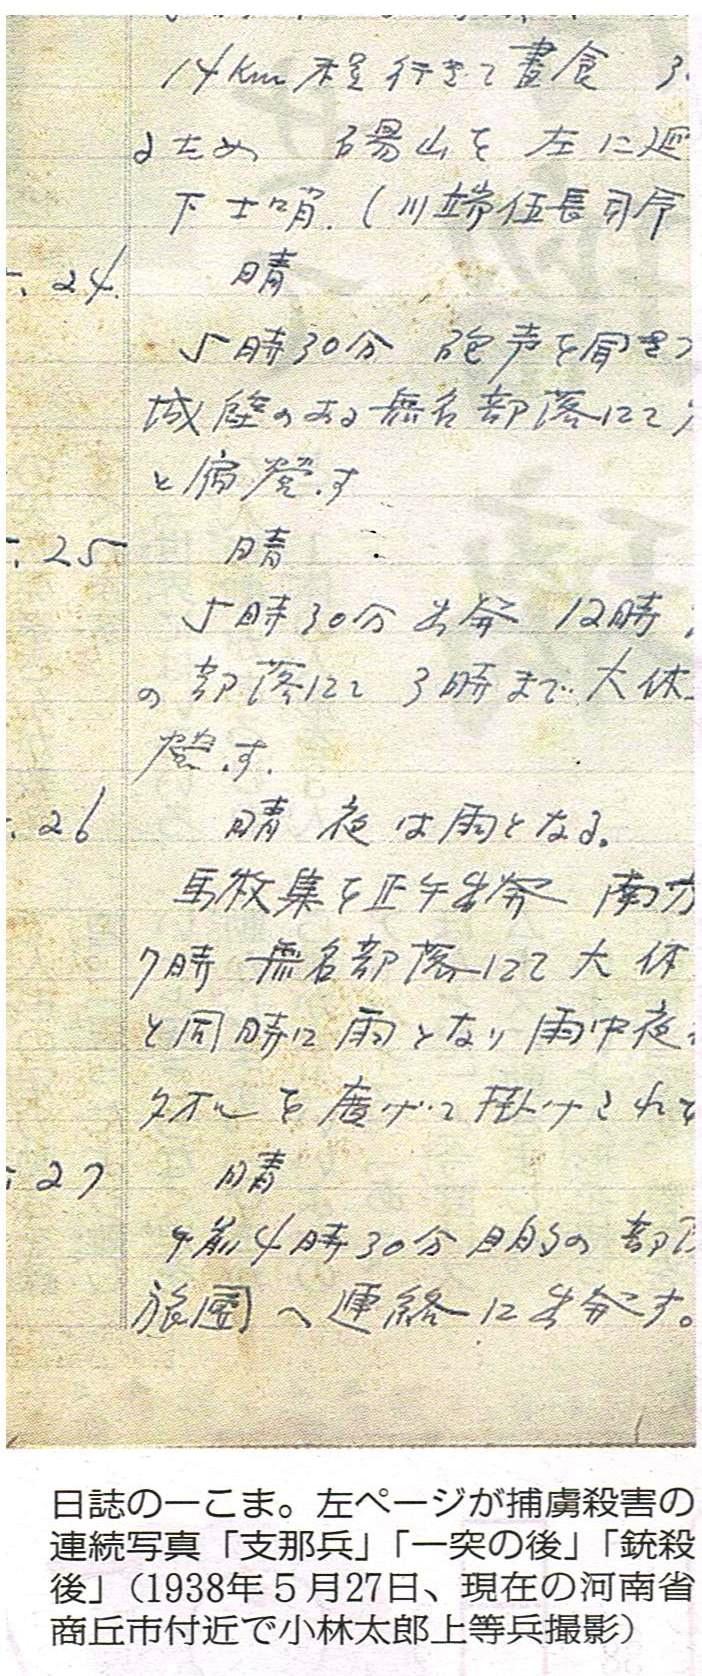 14km程行きて晝食 3.
るため 碭山を左に迴
下士哨.(川端伍長司令
.24. 晴
5時30分 砲声を聞きつ
城壁のある無名部落にて
と宿營す
.25 晴
5時30分出発 12時
の部落にて 3時まで大休
營す.
.26 晴 夜は雨となる。
馬牧集を正午出発 南方
7時 無名部落にて大休
と同時に雨となり雨中夜
タオルを廣げて掛けされを
.27 晴
午前4時30分目的の部
旅團へ連絡に出発す。
日誌の一こま。左ページが捕虜殺害の
連続写真「支那兵」「一突の後」「銃殺
後」（1938年５月27日、現在の河南省
商丘市付近で小林太郎上等兵撮影）